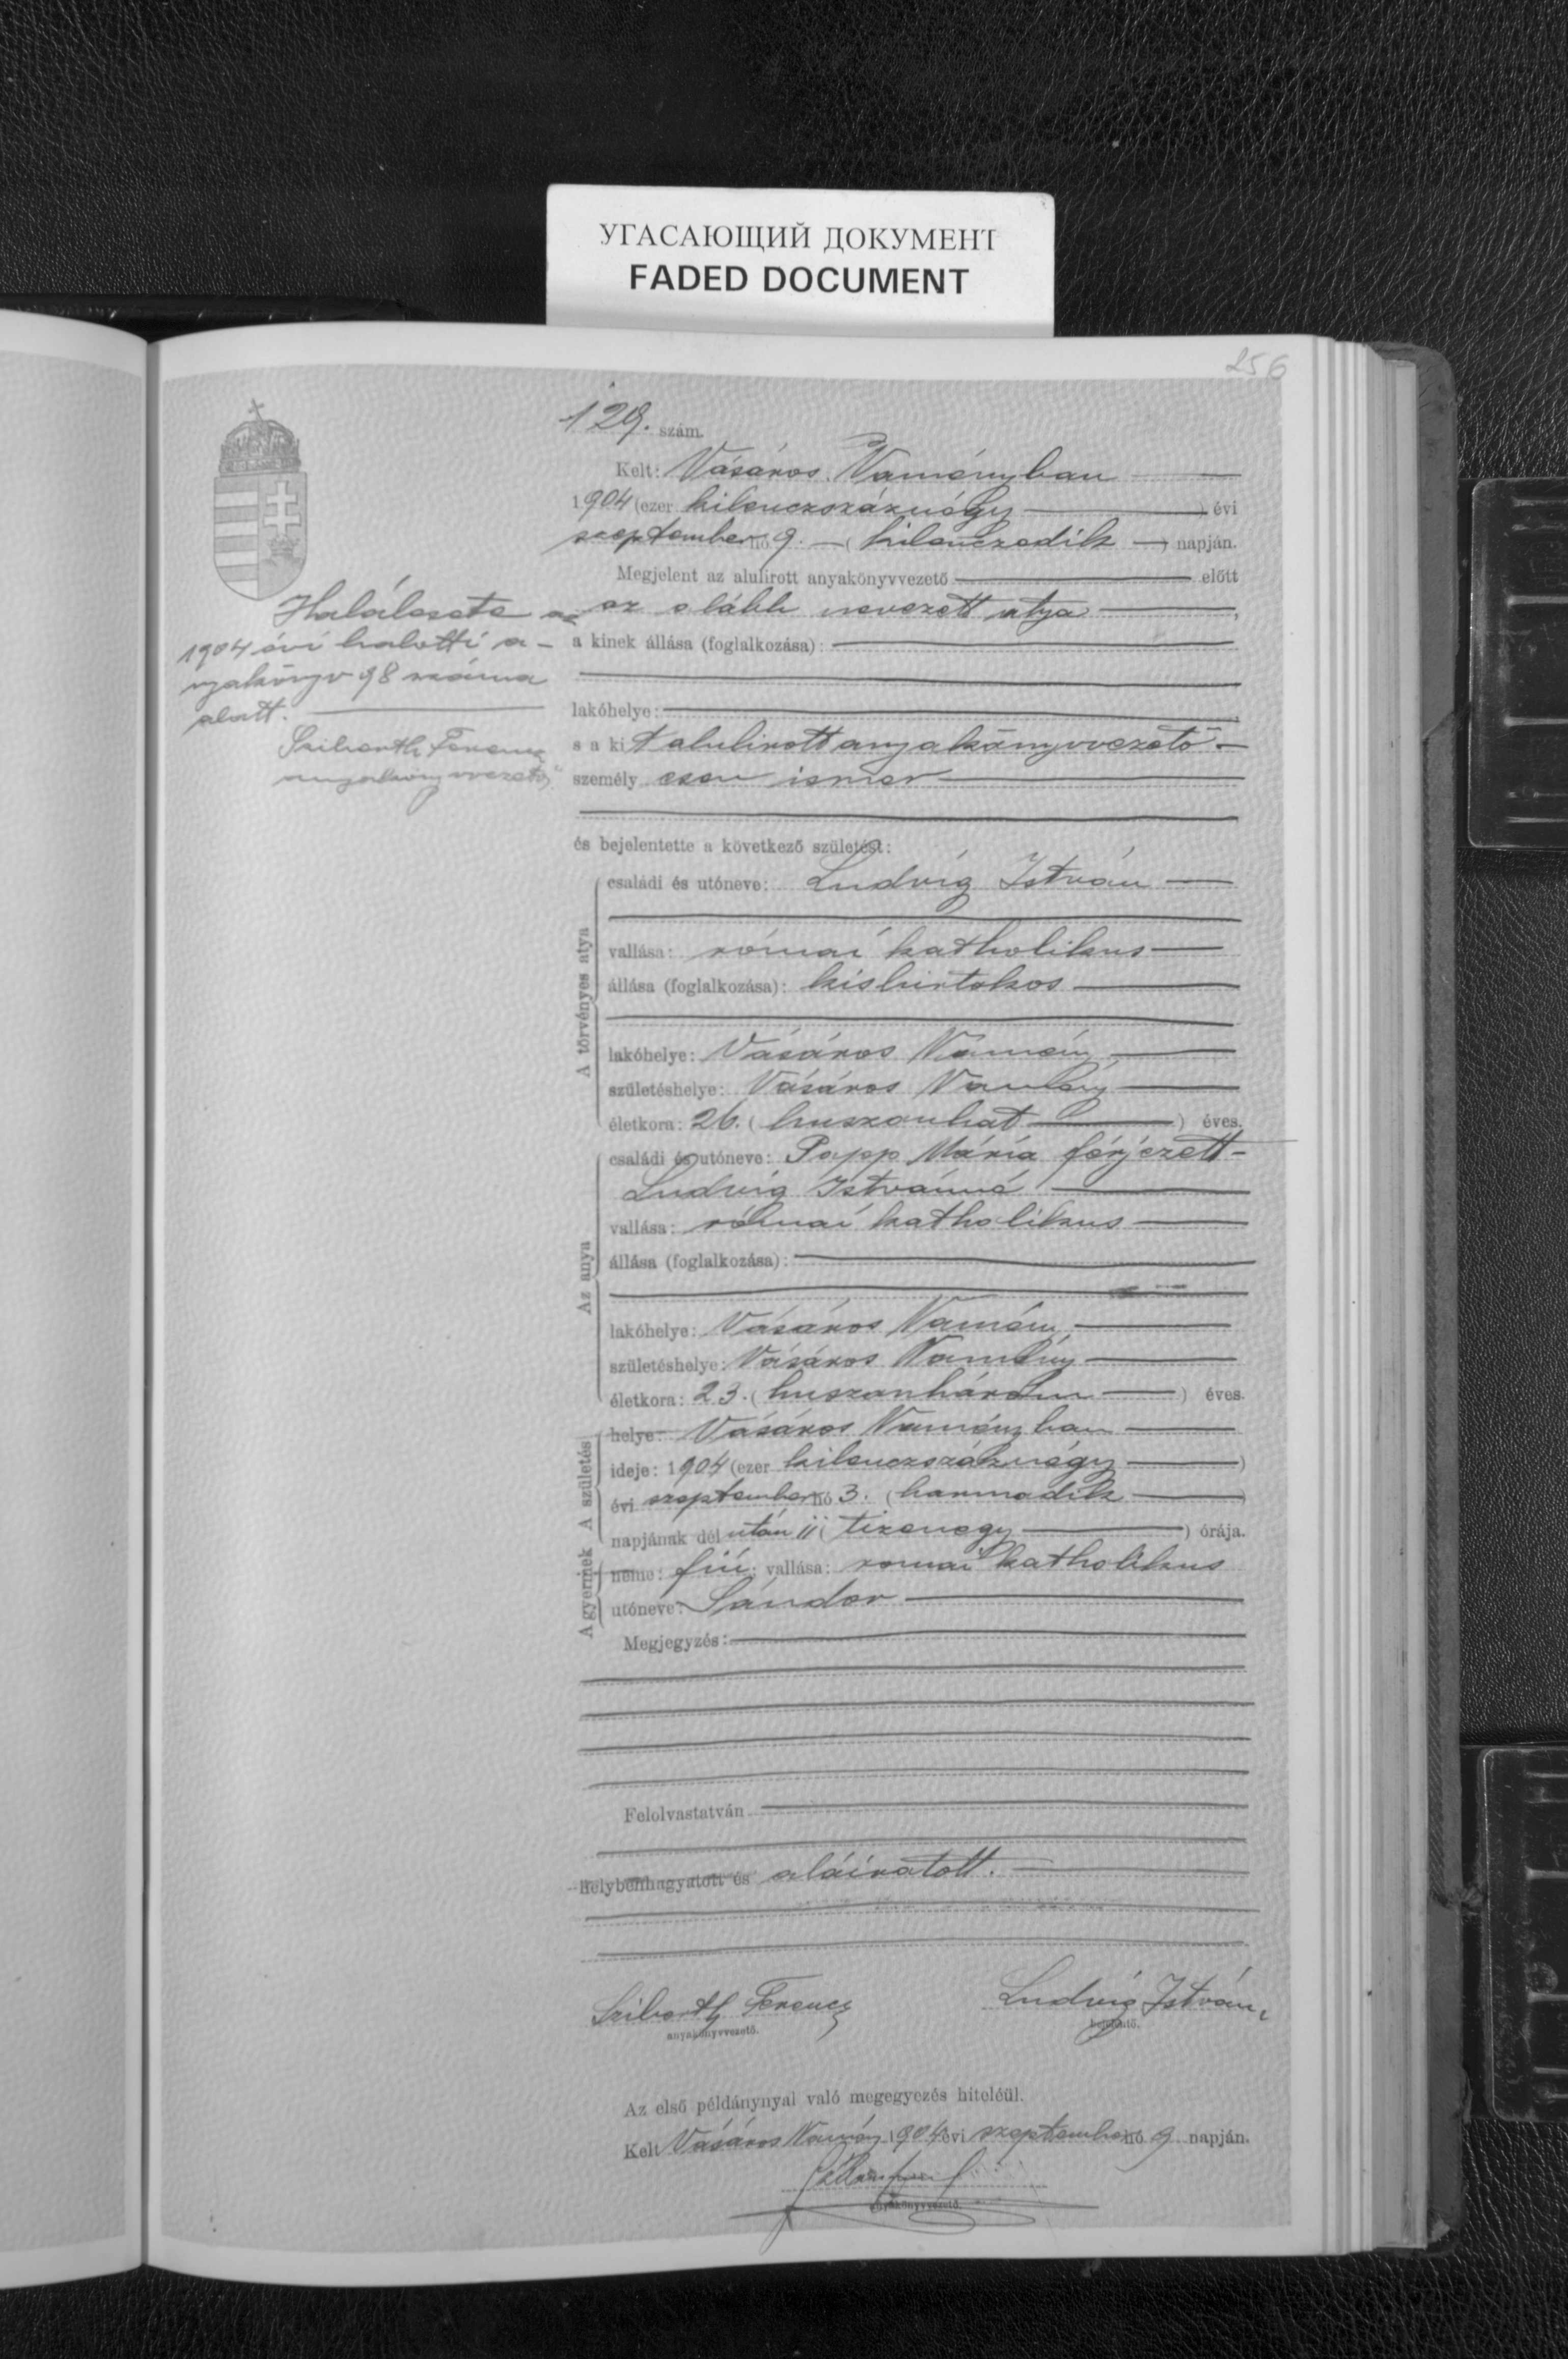 УГАСАЮЩИЙ ДОКУМЕНТ
FADED DOCUMENT
256
129. szám.
Kelt: Vásáros Naményban
1904 (ezer kilenczszáznégy ) évi
szeptember hó 9. ( kilenczedik ) napján.
Megjelent az alulírott anyakönyvvezető előtt
az alább nevezett atya ,
a kinek állása (foglalkozása):
lakóhelye:
s a kit alulirott anyakönyvvezető
személyesen ismer
és bejelentette a következő születést:
A törvényes atya
családi és utóneve: Ludvig István
vallása: római katholikus
állása (foglalkozása): kisbirtokos
lakóhelye: Vásáros Namény
születéshelye: Vásáros Namény
életkora: 26. ( huszonhat ) éves.
Az anya
családi és utóneve: Papp Mária férjezett
Ludvig Istvánné
vallása: római katholikus
állása (foglalkozása):
lakóhelye: Vásáros Namény
születéshelye: Vásáros Namény
életkora: 23. ( huszonhárom ) éves.
A születés
helye: Vásáros Naményban
ideje: 1904 (ezer kilenczszáznégy )
évi szeptember hó 3. ( harmadik )
napjának dél után 11 ( tizenegy ) órája.
A gyermek
neme: fiú; vallása: romai katholikus
utóneve: Sándor
Megjegyzés:
Felolvastatván
helybenhagyatott és aláiratott.
Szibarth Ferencz
anyakönyvvezető.
Ludvig István,
bejelentő.
Az első példánynyal való megegyezés hiteléül.
Kelt Vásáros Namény 1904 évi szeptember hó 9 napján.
anyakönyvvezető.
Halálesete az
1904 évi halotti a-
nyakönyv 98 száma
alatt.
Szibarth Ferencz
anyakönyvvezető